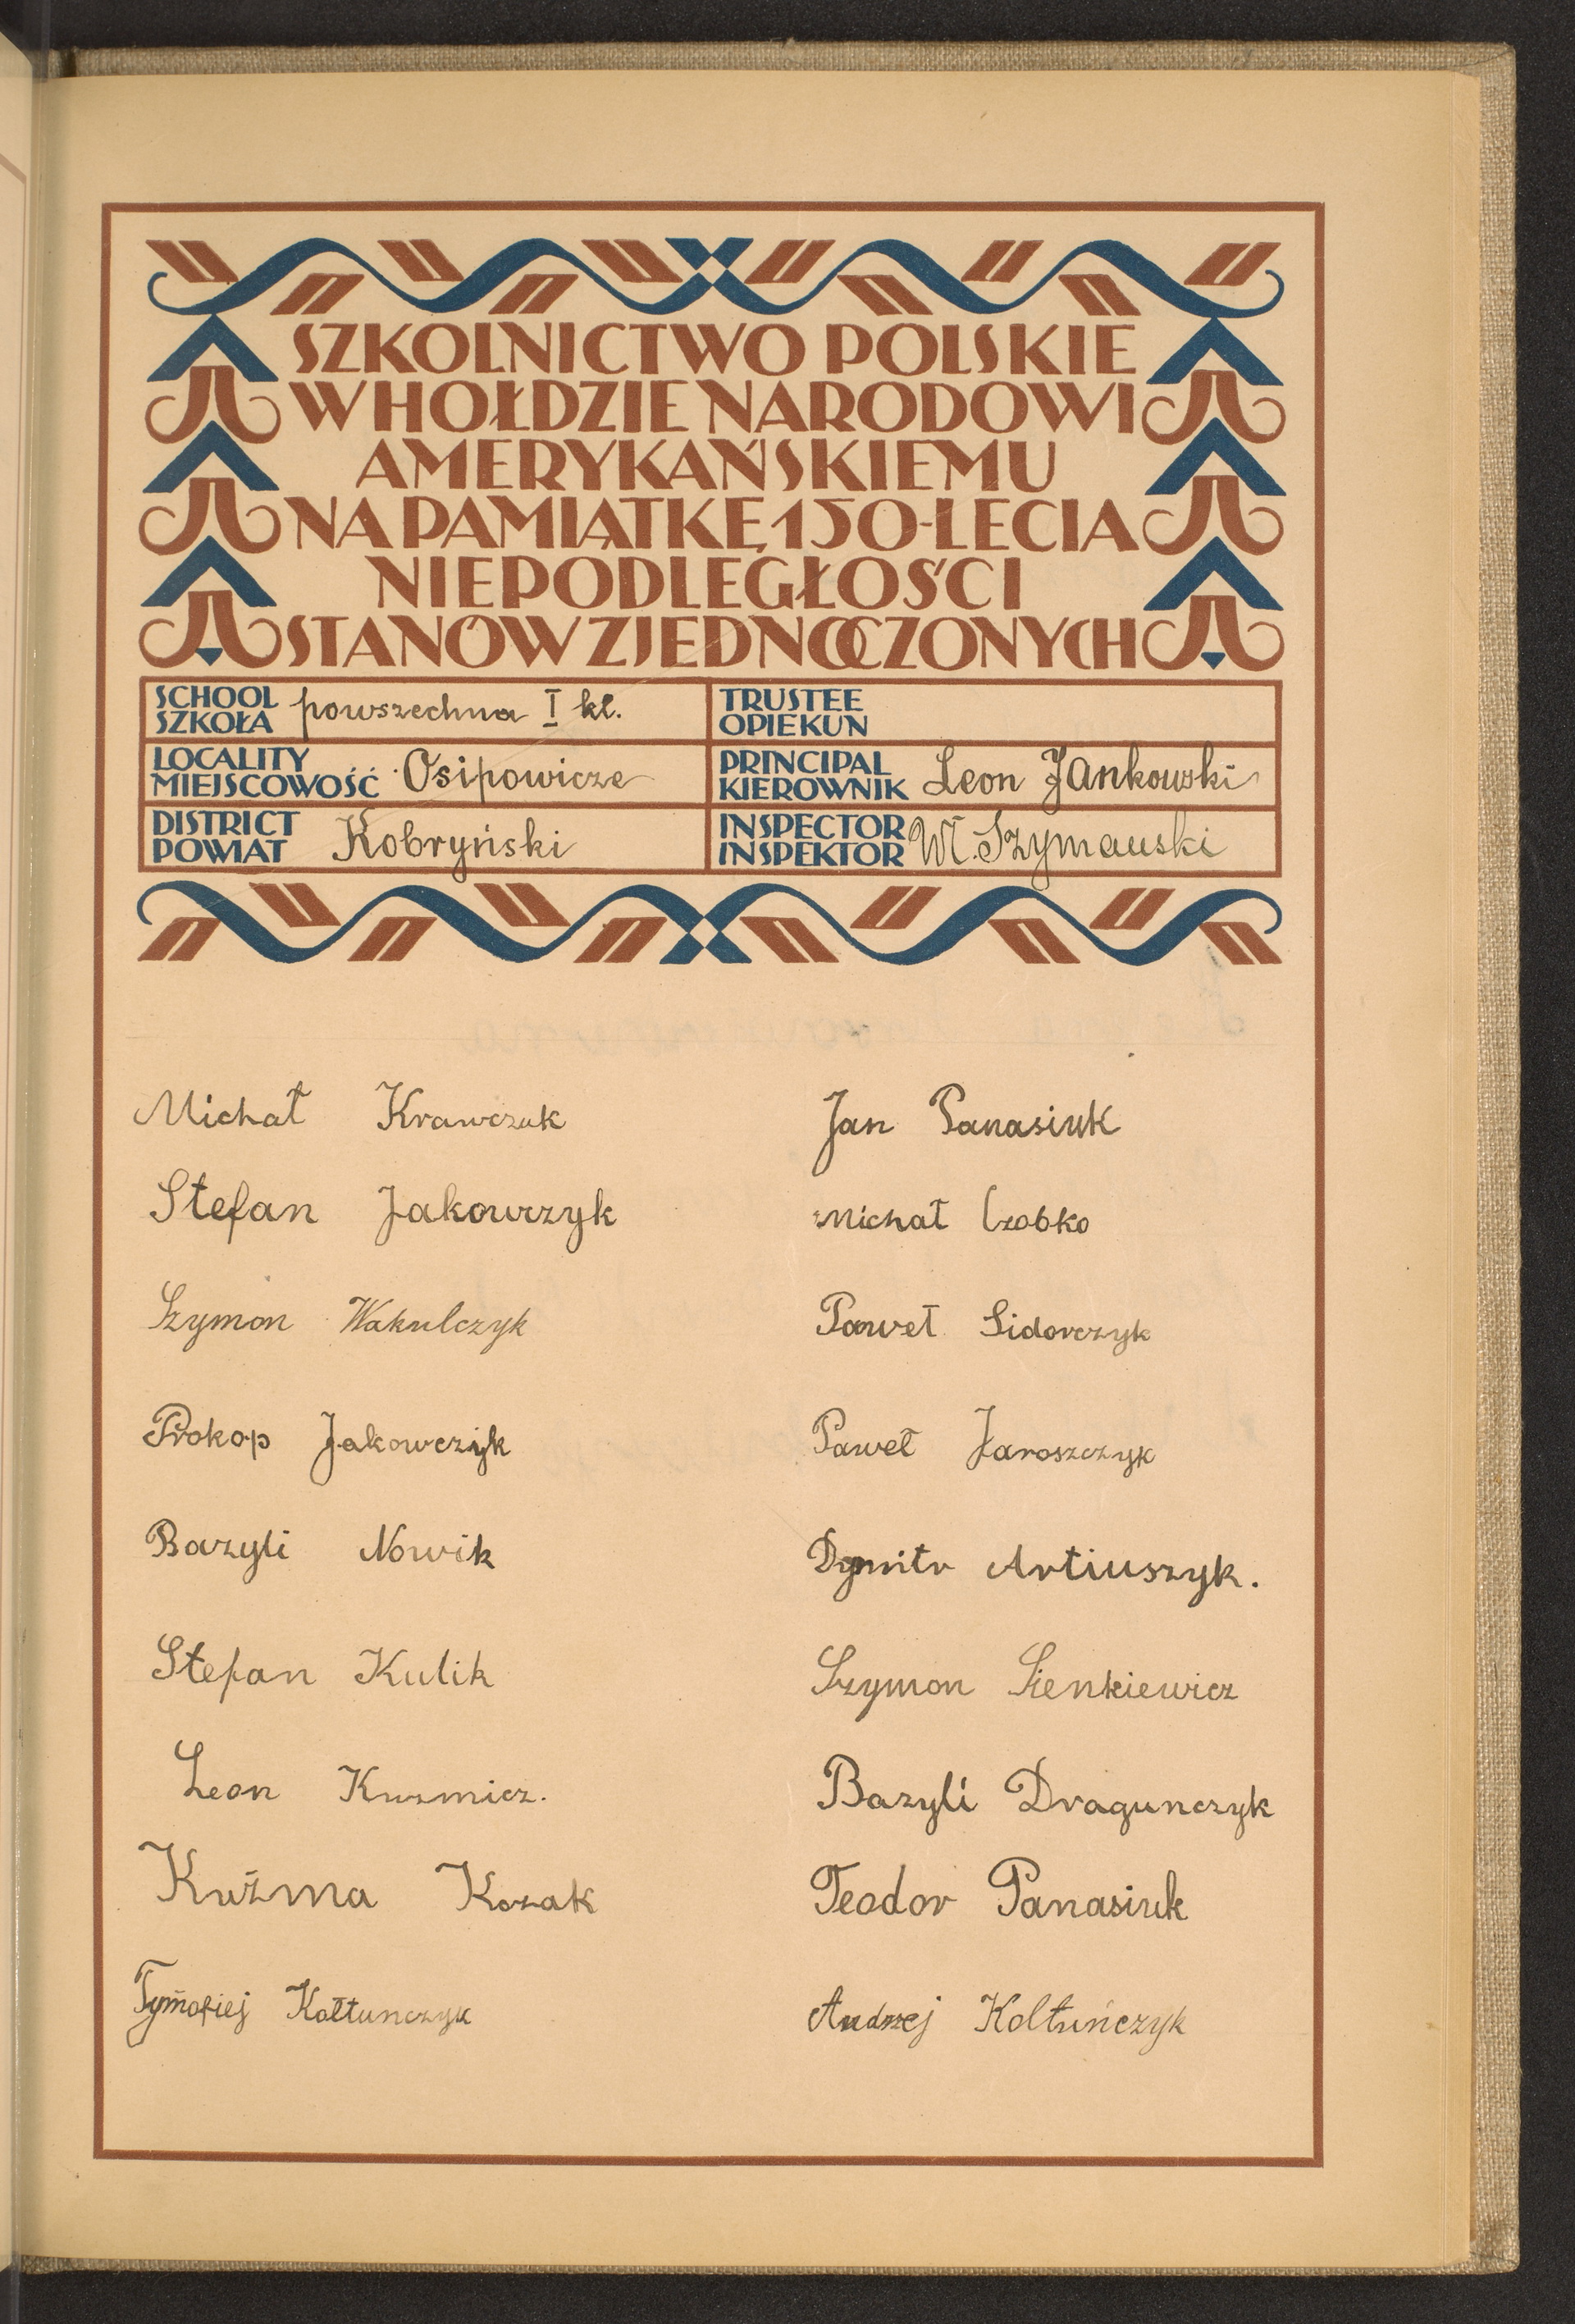 SZKOLNICTWO POLSKIE
W HOŁDZIE NARODOWI
AMERYKAŃSKIEMU
NA PAMIĄTKĘ 150-LECIA
NIEPODLEGŁOŚCI
STANÓW ZJEDNOCZONYCH
SCHOOL
SZKOŁA powszechna I kl.
TRUSTEE
OPIEKUN
LOCALITY
MIEJSCOWOŚĆ Osipowicze
PRINCIPAL
KIEROWNIK Leon Jankowski
DISTRICT
POWIAT Kobryński
INSPECTOR
INSPEKTOR Wł. Szymański
Michał Krawczuk
Stefan Jakowczyk
Szymon Wakulczyk
Prokop Jakowczyk
Bazyli Nowik
Stefan Kulik
Leon Kuzmicz.
Kuźma Kozak
Tymofiej Kołtunczyk
Jan Panasiuk
Michał Czobko
Paweł Sidorczyk
Paweł Jaroszczyk
Dymitr Artiuszyk.
Szymon Sienkiewicz
Bazyli Dragunczyk
Teodor Panasiuk
Andrzej Kołtuńczyk